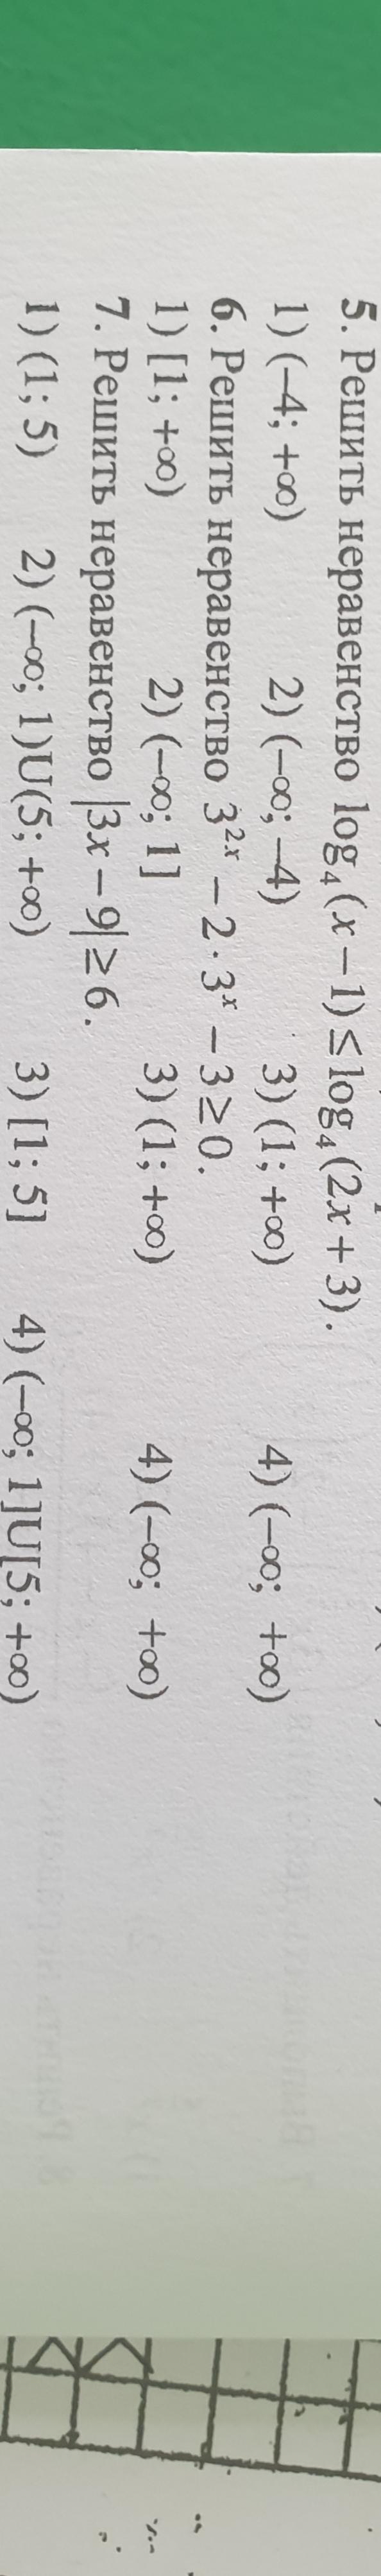 5. Решить неравенство log₄(x – 1) ≤ log₄(2x + 3).
1) (–4; +∞) 2) (–∞; –4) 3) (1; +∞) 4) (–∞; +∞)
6. Решить неравенство 3²ˣ – 2 · 3ˣ – 3 ≥ 0.
1) [1; +∞) 2) (–∞; 1] 3) (1; +∞) 4) (–∞; +∞)
7. Решить неравенство |3x – 9| ≥ 6.
1) (1; 5) 2) (–∞; 1)U(5; +∞) 3) [1; 5] 4) (–∞; 1]U[5; +∞)